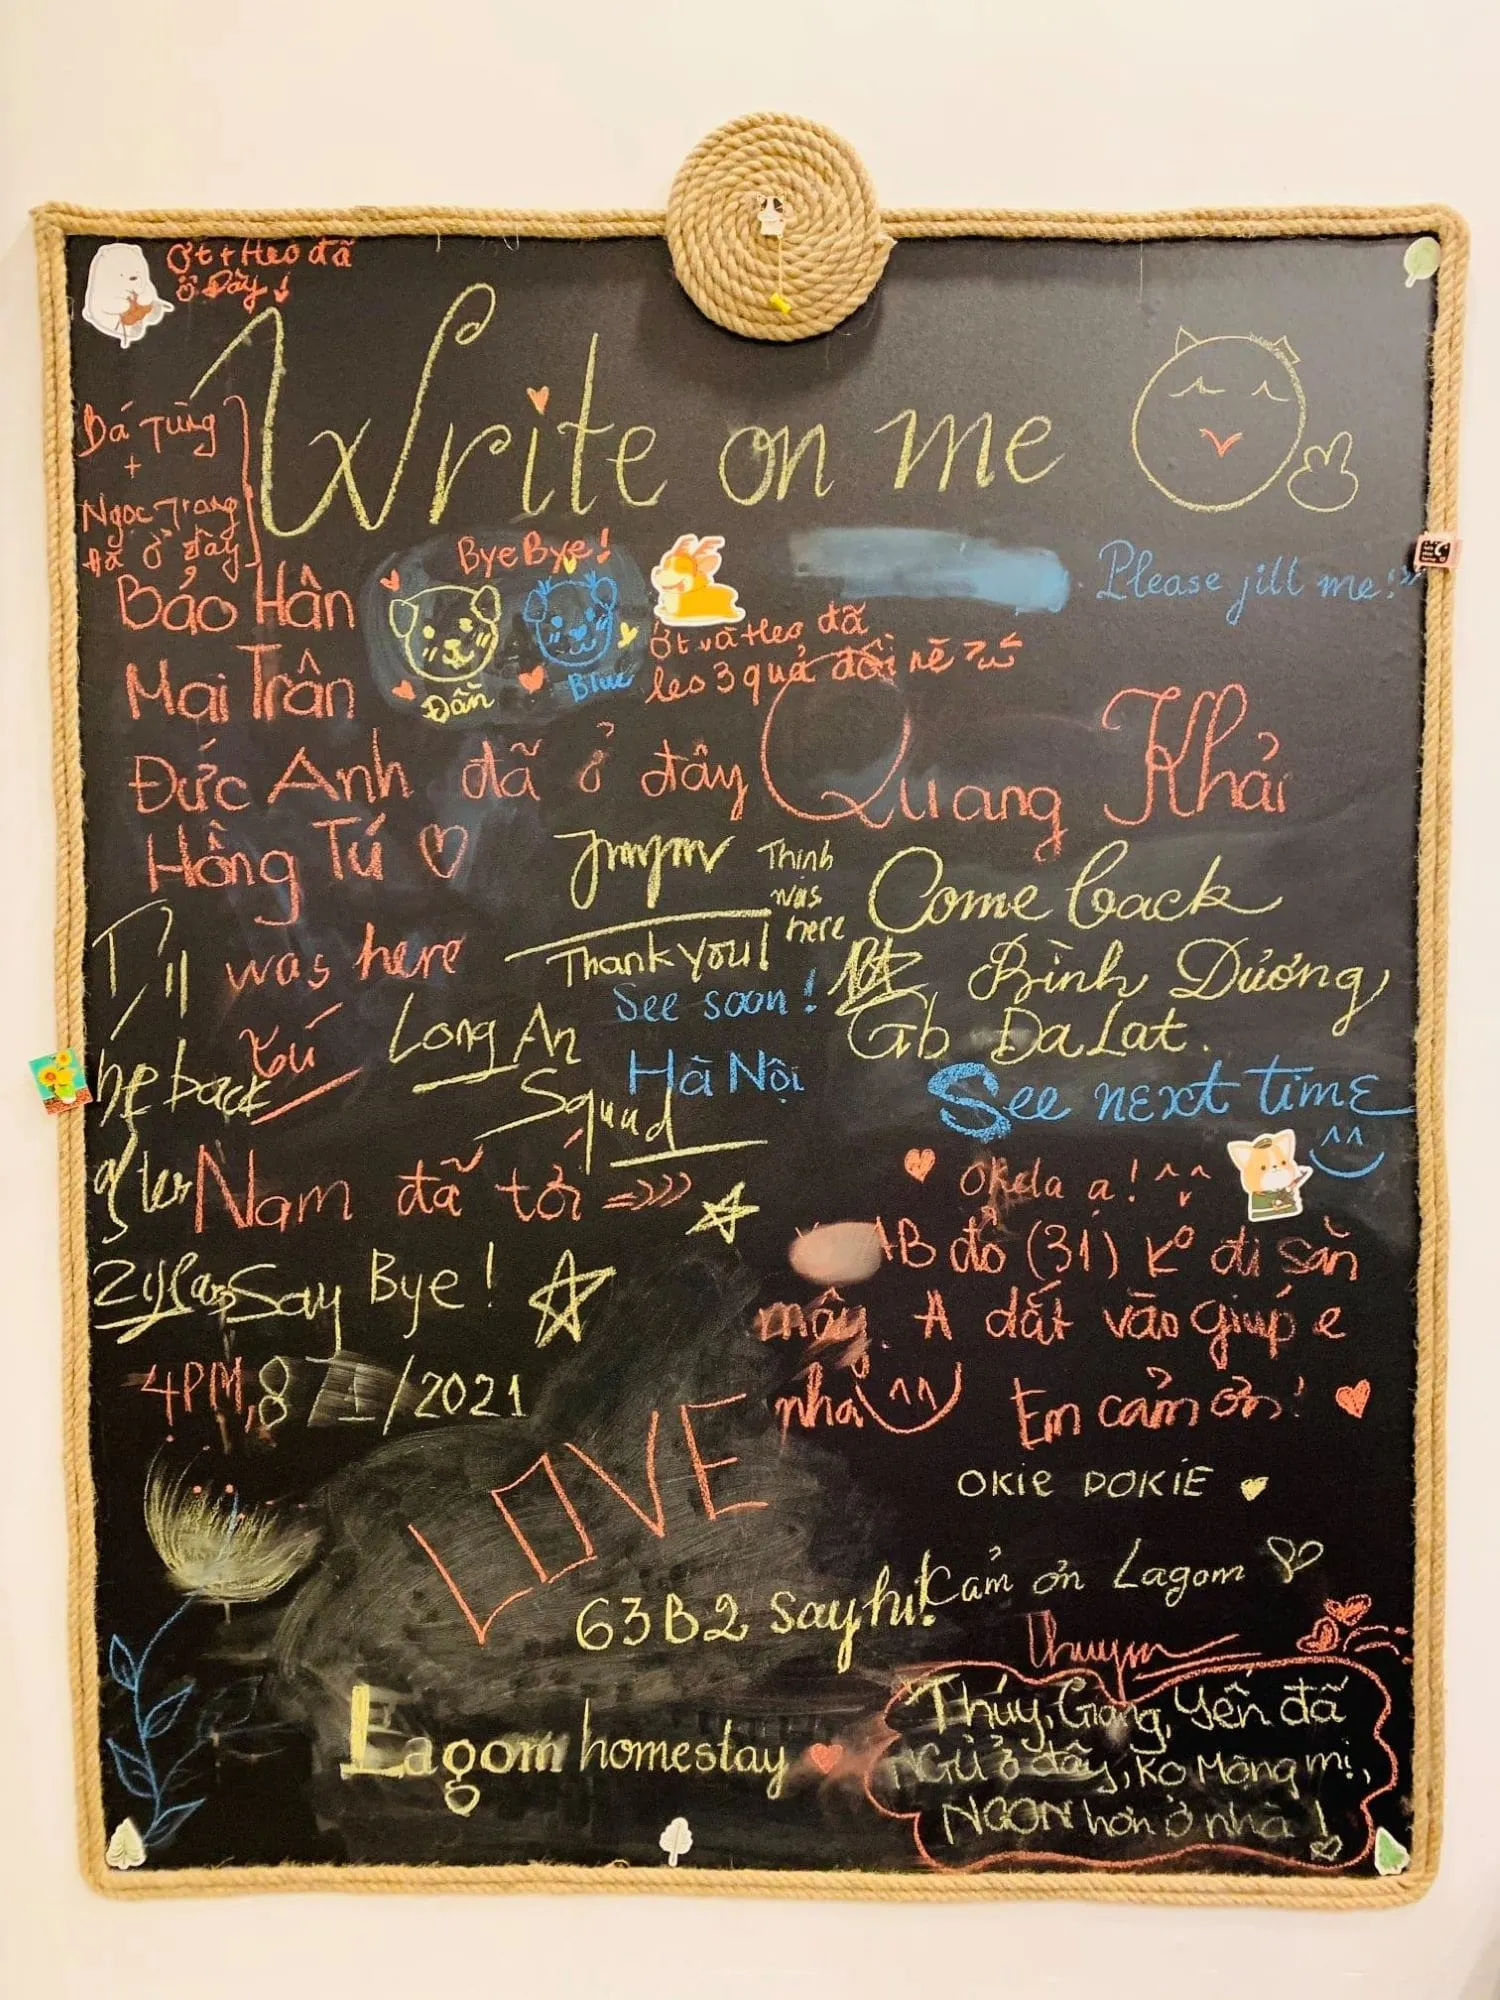 Ớt + Heo đã
ở Đây
Write on me
Bá Tùng
+
Ngọc Trang
đã ở đây
ByeBye!
Please jill me!
Bảo Hân
Đần
Blue
Ớt và Heo đã
les 3 quả đồi
Mai Trân
Đức Anh đã ở đây
Quang Khải
Hồng Tú
Thinh
was
here
Come back
was here
Thank you!
Bình Dương
See soon!
Tú
Long An
Squad
Hà Nội
Gb DaLat.
be back
See next time
^^
after
Nam đã tới
Okela ạ! ^^
AB đỏ (31) K° đi săn
mây. A dắt vào giúp e
nha ^^ Em cảm ơn!
Say Bye!
4PM, 8/1/2021
LOVE
OKie DOKiE
63B2 say hi!
Cảm ơn Lagom
Lagom homestay
Thúy, Giang, Yến đã
NGủ ở đây, Ko Mộng mị,
NGON hơn ở nhà!